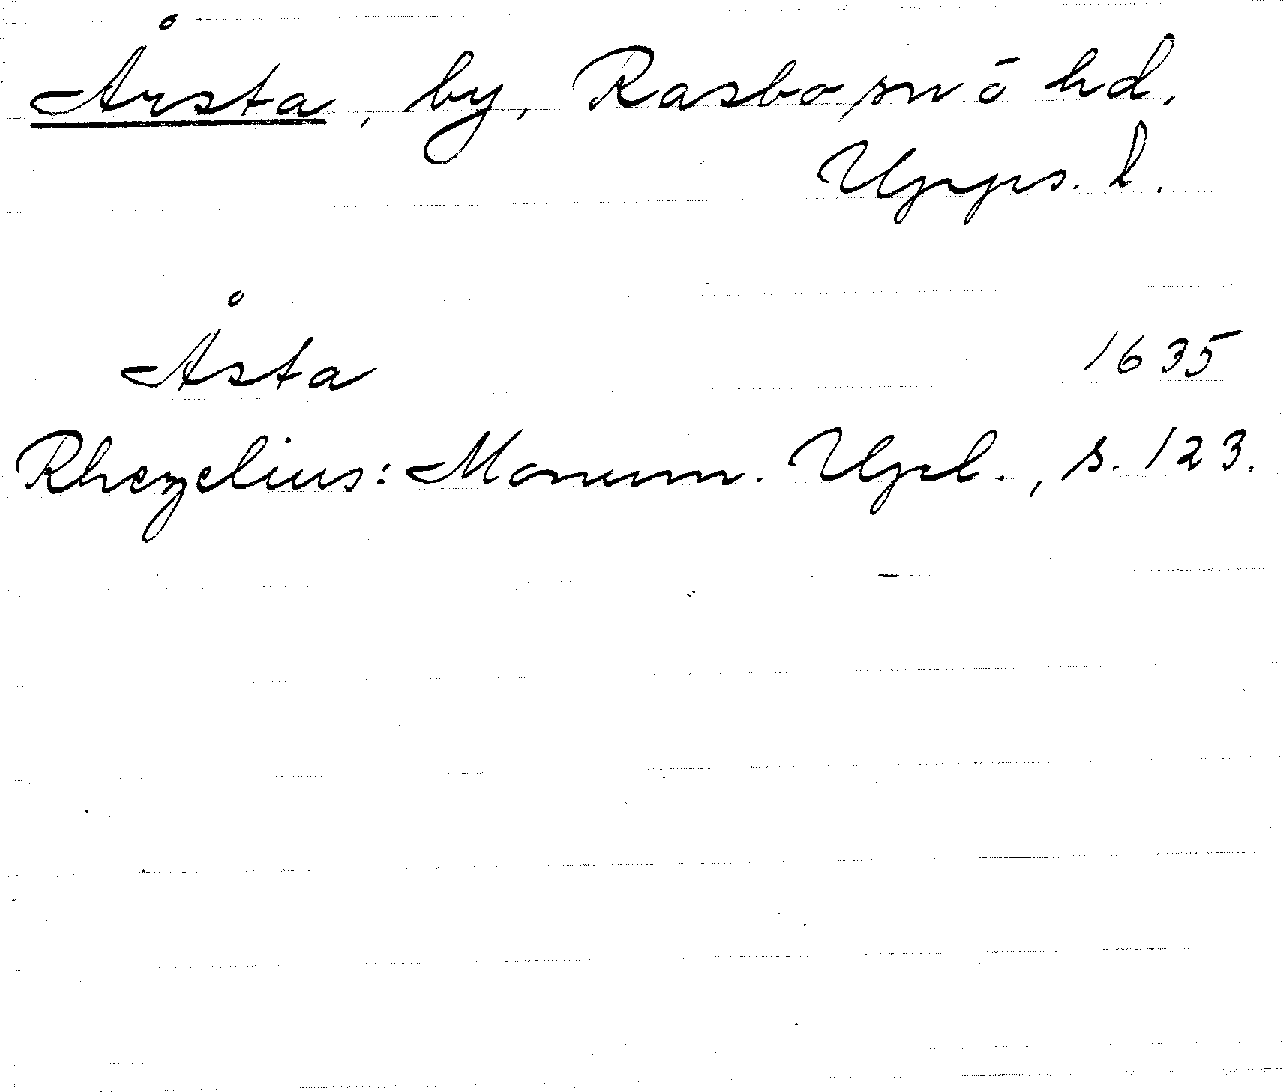 Årsta, by, Rasbo sn o hd,
Upps. l.
Åsta 1635
Rhezelius: Monum. Upl., s. 123.